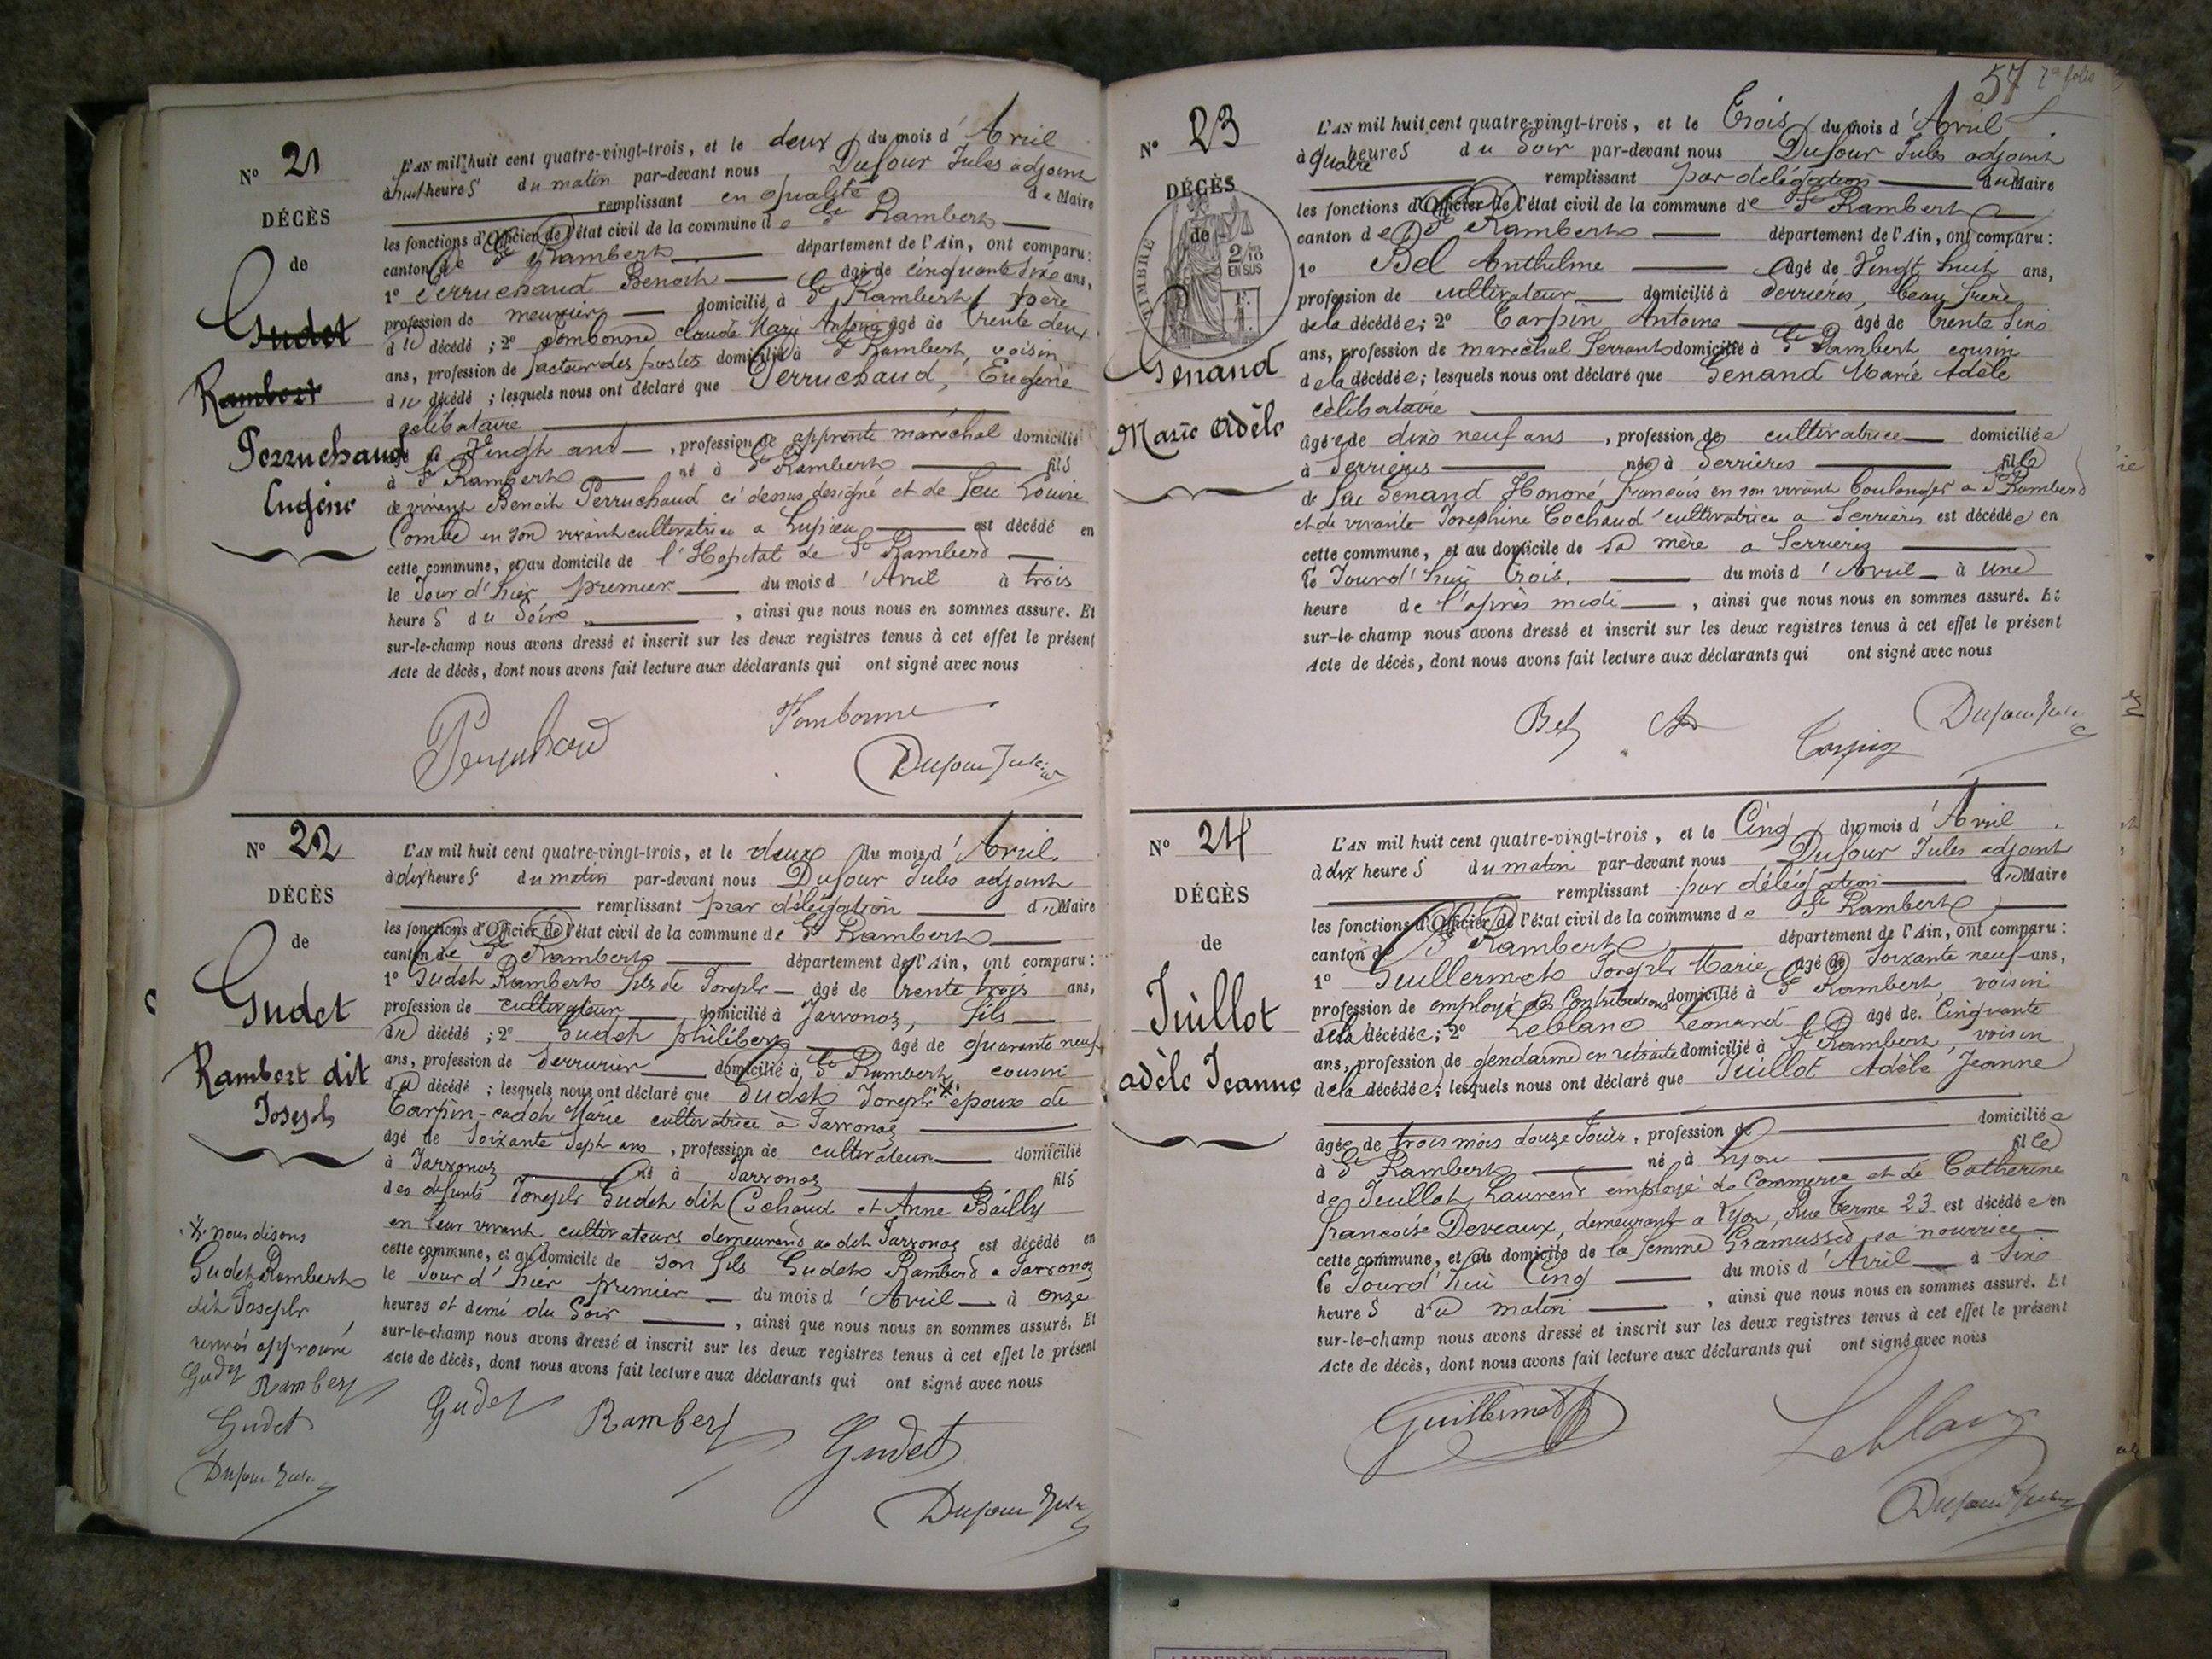 N° 21
DÉCÈS
de
Gudet
Rambert
Perruchaud
Eugène
L'AN mil huit cent quatre-vingt-trois, et le deux du mois d'Avril
à huit heures du matin par-devant nous Dufour Jules adjoint
remplissant en qualité de Maire
les fonctions d'Officier de l'état civil de la commune de St Rambert
canton de St Rambert département de l'Ain, ont comparu :
1° Perruchaud Benoit âgé de cinquante six ans,
profession de meunier domicilié à St Rambert, père
du décédé ; 2° Tombonne claude Marie Antoine âgé de trente deux
ans, profession de facteur des postes domicilié à St Rambert, voisin
du décédé ; lesquels nous ont déclaré que Perruchaud, Eugène
célibataire
âgé de Vingt ans, profession de apprenti maréchal domicilié
à St Rambert né à St Rambert fils
de vivant Benoit Perruchaud ci dessus designé et de feu Louise
Combe en son vivant cultivatrice a Luyzieu est décédé en
cette commune, et au domicile de l'Hopital de St Rambert
le Jour d'hier premier du mois d'Avril à trois
heures du Soir, ainsi que nous nous en sommes assuré. Et
sur-le-champ nous avons dressé et inscrit sur les deux registres tenus à cet effet le présent
Acte de décès, dont nous avons fait lecture aux déclarants qui ont signé avec nous
Perruchaud Tombonne
Dufour Jules
N° 22
DÉCÈS
de
Gudet
Rambert dit
Joseph
L'AN mil huit cent quatre-vingt-trois, et le deux du mois d'Avril
à dix heures du matin par-devant nous Dufour Jules adjoint
remplissant par délégation du Maire
les fonctions d'Officier de l'état civil de la commune de St Rambert
canton de St Rambert département de l'Ain, ont comparu :
1° Gudet Rambert fils de Joseph âgé de trente trois ans,
profession de cultivateur domicilié à Javronoz, fils
du décédé ; 2° Gudet philibert âgé de quarante neuf
ans, profession de Serrurier domicilié à St Rambert cousin
du décédé ; lesquels nous ont déclaré que Gudet Joseph * époux de
Carpin-cadoh Marie cultivatrice à Javronoz
âgé de Soixante Sept ans, profession de cultivateur domicilié
à Javronoz né à Javronoz fils
des défunts Joseph Gudet dit Cochaud et Anne Bailly
en leur vivant cultivateurs demeurant au dit Javronoz est décédé en
cette commune, et au domicile de son fils Gudet Rambert a Javronoz
le Jour d'hier premier du mois d'Avril à onze
heures et demi du Soir, ainsi que nous nous en sommes assuré. Et
sur-le-champ nous avons dressé et inscrit sur les deux registres tenus à cet effet le présent
Acte de décès, dont nous avons fait lecture aux déclarants qui ont signé avec nous
* nous disons
Gudet Rambert
dit Joseph
renvoi approuvé
Gudet Rambert
Gudet
Dufour Jules
Gudet Rambert Gudet
Dufour Jules
57 7e folio
N° 23
DÉCÈS
de
TIMBRE
2/10
EN SUS
Genand
Marie Adèle
L'AN mil huit cent quatre-vingt-trois, et le Trois du mois d'Avril
à quatre heures du Soir par-devant nous Dufour Jules adjoint
remplissant par délégation du Maire
les fonctions d'Officier de l'état civil de la commune de St Rambert
canton de St Rambert département de l'Ain, ont comparu :
1° Bel Anthelme âgé de Vingt huit ans,
profession de cultivateur domicilié à Serrières, beau frère
de la décédée ; 2° Carpin Antoine âgé de trente Six
ans, profession de maréchal ferrant domicilié à St Rambert cousin
de la décédée ; lesquels nous ont déclaré que Genand Marie Adèle
célibataire
âgée de dix neuf ans, profession de cultivatrice domiciliée
à Serrières née à Serrières fille
de feu Genand Honoré François en son vivant boulanger a St Rambert
et de vivante Josephine Cochaud cultivatrice a Serrières est décédée en
cette commune, et au domicile de sa mère a Serrières
le Jourd'hui trois du mois d'Avril à une
heure de l'après midi, ainsi que nous nous en sommes assuré. Et
sur-le-champ nous avons dressé et inscrit sur les deux registres tenus à cet effet le présent
Acte de décès, dont nous avons fait lecture aux déclarants qui ont signé avec nous
Bel Carpin Dufour Jules
N° 24
DÉCÈS
de
Juillot
adèle Jeanne
L'AN mil huit cent quatre-vingt-trois, et le Cinq du mois d'Avril
à dix heures du matin par-devant nous Dufour Jules adjoint
remplissant par délégation du Maire
les fonctions d'Officier de l'état civil de la commune de St Rambert
canton de St Rambert département de l'Ain, ont comparu :
1° Guillermet Joseph Marie âgé de Soixante neuf ans,
profession de employé des Contributions domicilié à St Rambert, voisin
de la décédée ; 2° Leblanc Leonard âgé de Cinquante
ans, profession de gendarme en retraite domicilié à St Rambert, voisin
de la décédée ; lesquels nous ont déclaré que Juillot Adèle Jeanne
âgée de trois mois douze Jours, profession de domiciliée
à St Rambert né à Lyon fille
de Juillot Laurent employé de Commerce et de Catherine
francoise Deveaux, demeurant a Lyon, Rue Terme 23 est décédée en
cette commune, et au domicile de la femme Gramusset sa nourrice
le Jourd'hui Cinq du mois d'Avril à Six
heures du matin, ainsi que nous nous en sommes assuré. Et
sur-le-champ nous avons dressé et inscrit sur les deux registres tenus à cet effet le présent
Acte de décès, dont nous avons fait lecture aux déclarants qui ont signé avec nous
Guillermet Leblanc
Dufour Jules